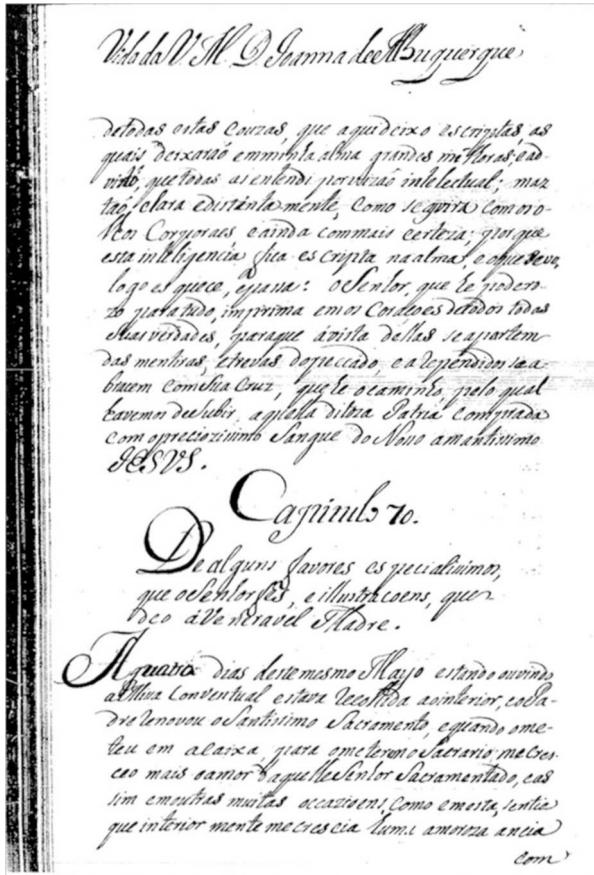 Vida da V. M. D. Joanna de Albuquerque
de todas estas couzas, que aqui deixo escriptas, as
quais deixarão em minha alma grandes melhoras; e ad-
virto, que todas as entendi por vizão intelectual; mas
taõ clara e distintamente, como se as vira com os o-
lhos Corporaes e ainda com mais certeza; porque
esta inteligencia fica escripta na alma, e o que se ve,
logo esquece, e passa: o Senhor, que he podero-
zo para tudo, imprima em os Coraçoes de todos todas
suas verdades, para que á vista dellas se apartem
das mentiras, e trevas do peccado, e arependidos se a-
bracem com Sua Cruz, que he o caminho, pelo qual
havemos de subir, aquella ditoza Patria comprada
com o preciozissimo Sangue do Nosso amantissimo
JESVS.
Capitulo 70.
De alguns favores especialissimos,
que o Senhor fes, e illustraçoens, que
deo á Veneravel Madre.
A quatro dias deste mesmo Mayo estando ouvindo
a Missa Conventual estava recolhida ao interior, e o Pa-
dre renovou o Santissimo Sacramento, e quando o me-
teu em a caixa, para o meter no Sacrario, me cres-
ceo mais o amor daquelle Senhor Sacramentado, e as-
sim em outras muitas occazioens, como em esta, sentia
que interiormente me crescia huma amoroza ancia
com